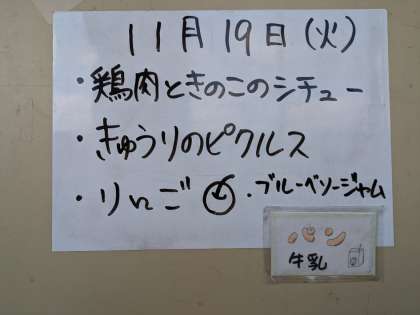 11月19日(火)
・鶏肉ときのこのシチュー
・きゅうりのピクルス
・りんご ・ブルーベリージャム
パン
牛乳